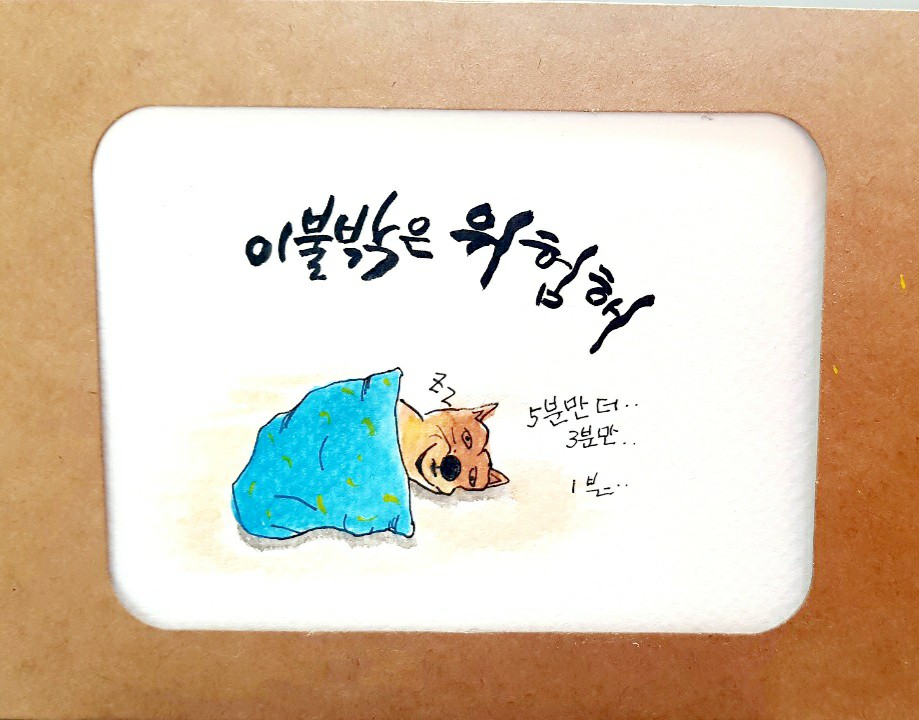 이불밖은 위험해
Zz
5분만 더..
3분만..
1분...